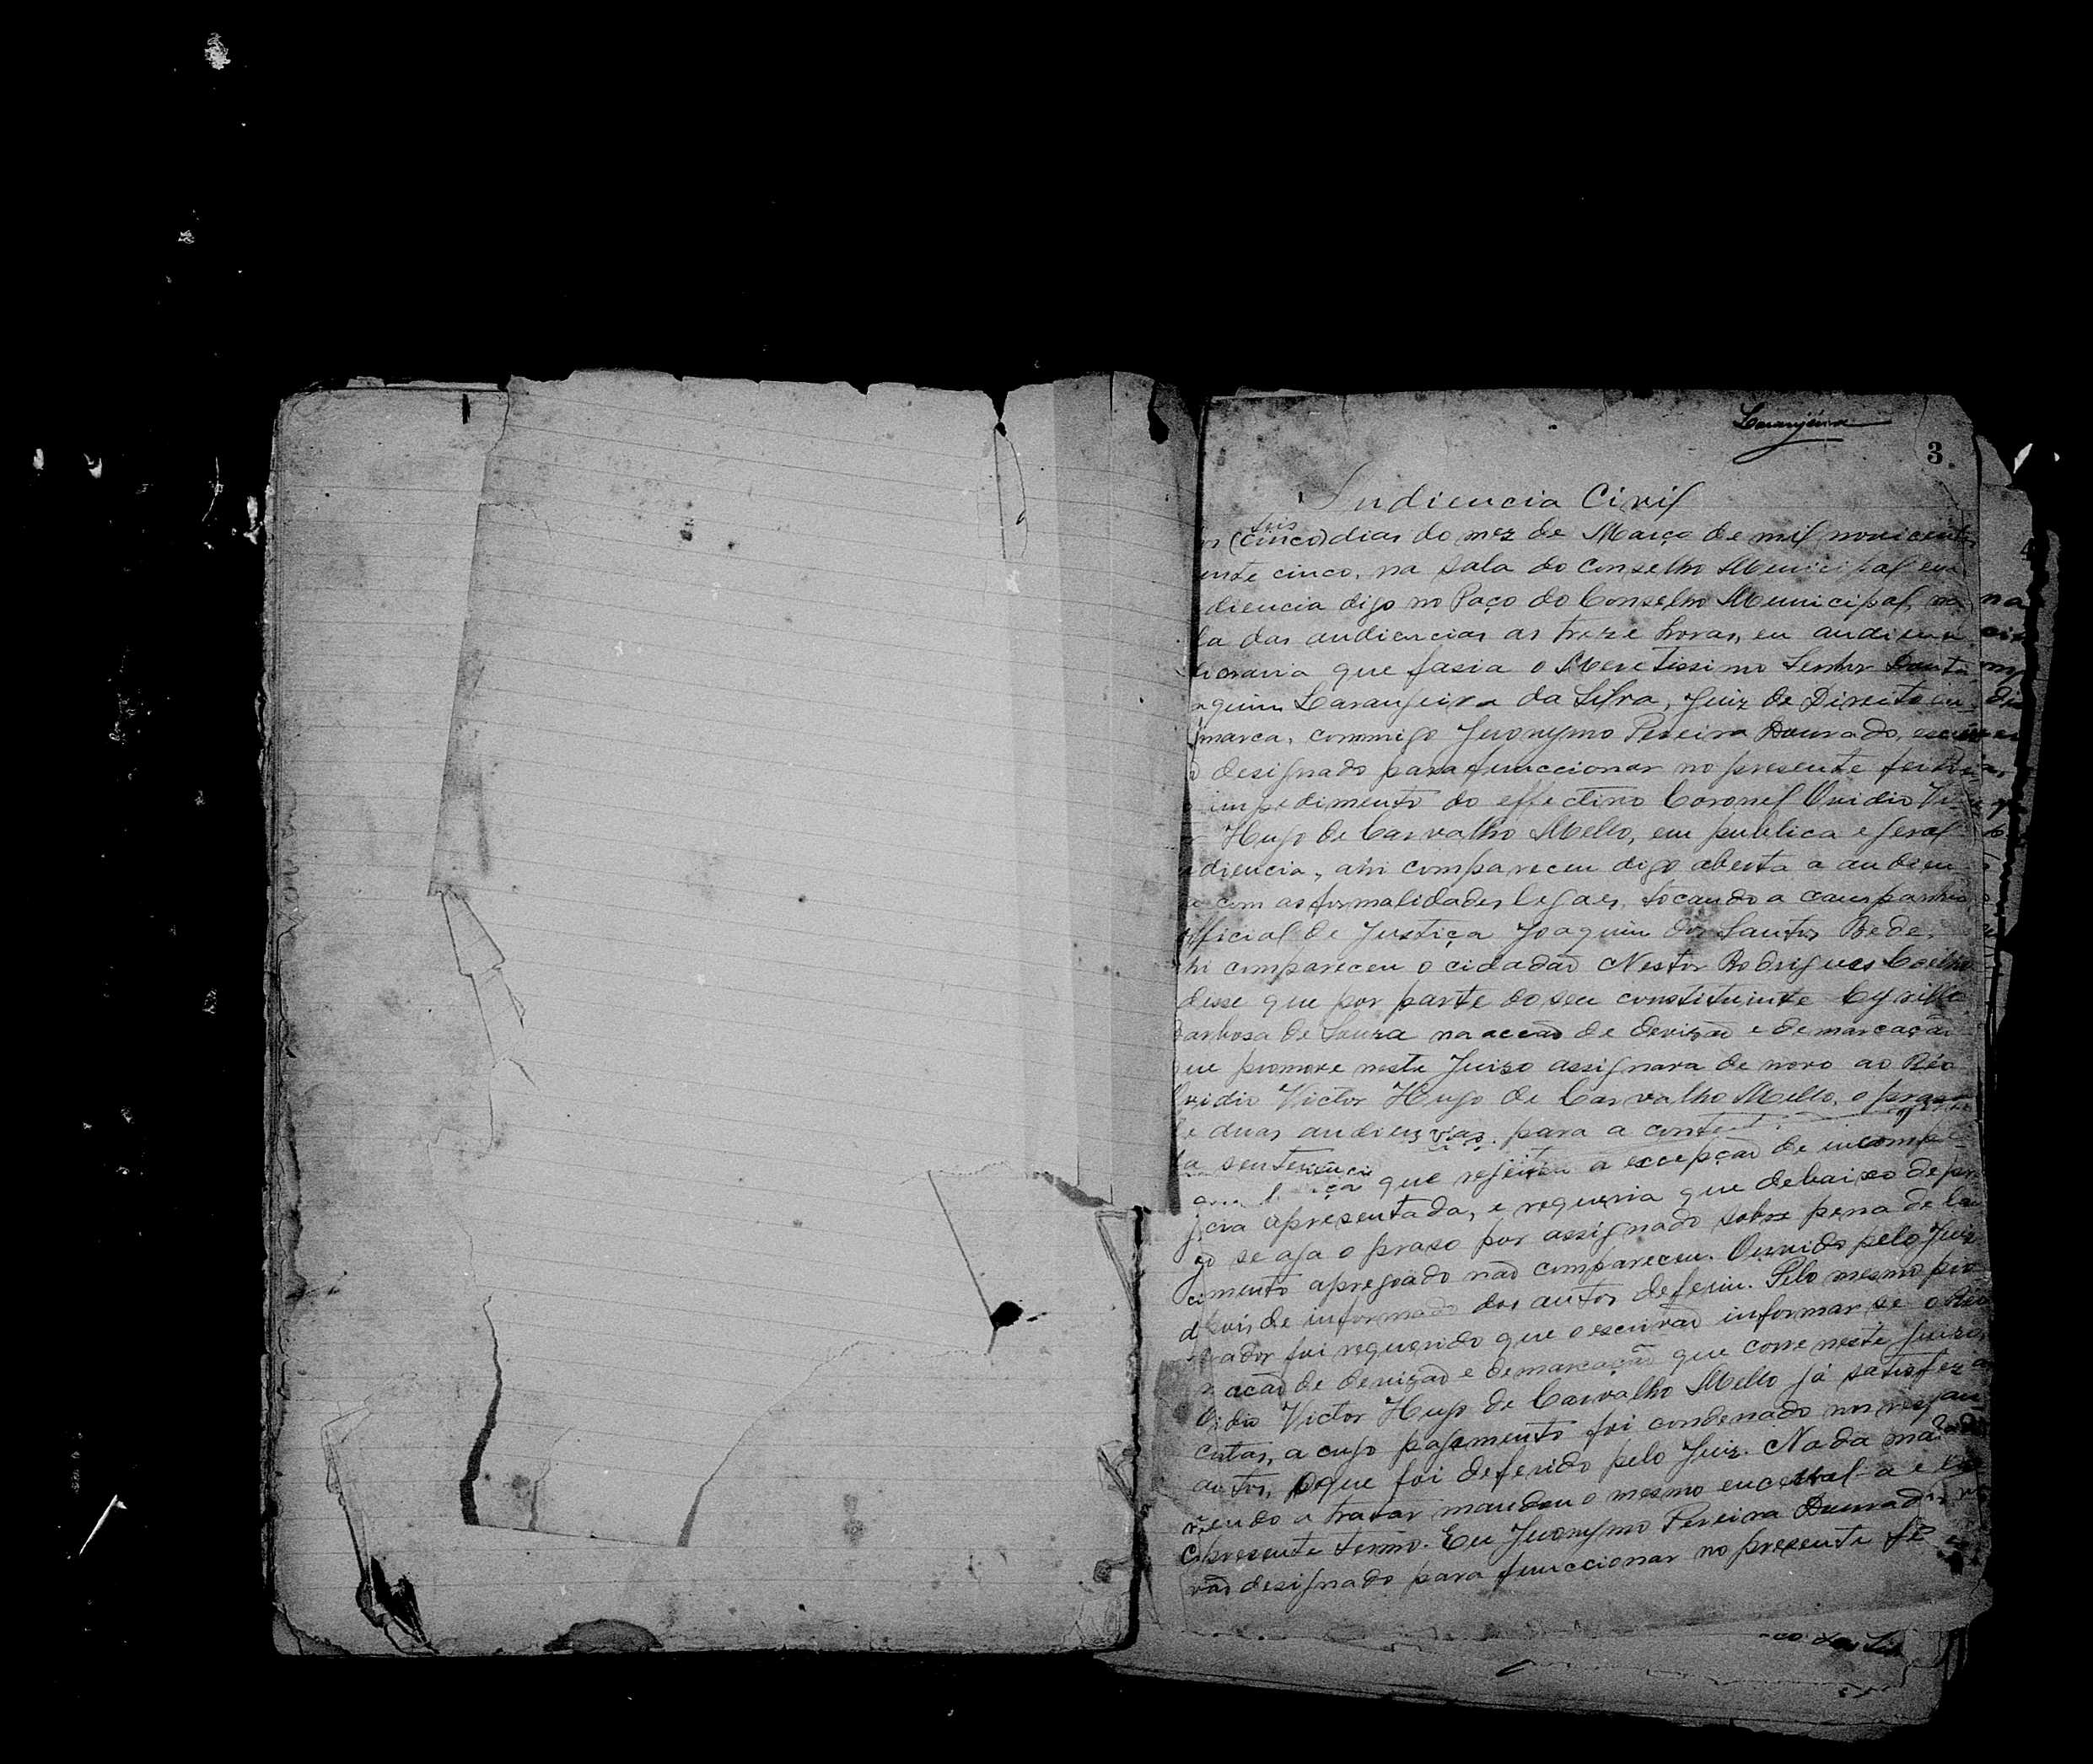 Laranjeira
3
Audiencia Civil
seis
os (cinco) dias do mez de Março de mil novicentos
inte cinco, na sala do Conselho Municipal em
diencia digo no Paço do Conselho Municipal, na
la das audiencias as treze horas, em audien
dinaria que fasia o Meretissimo Senhor Douto
aquim Laranjeira da Silva, Juiz de Direito em
marca, commigo Jeronymo Pereira Dourado, escri
designado para funccionar no presente feito
impedimento do effectivo Coronel Ovidio Vi
Hugo de Carvalho Mello, em publica e geral
diencia, ahi compareceu digo aberta a audien
com as formalidades legaes, tocando a campanhia
official de Justiça Joaquim dos Santos Bede,
hi compareceu o cidadão Nestor Rodrigues Coelho
disse que por parte do seu constituinte Cyrillo
Barbosa de Souza na accão de devizão e demarcação
que promove neste Juizo assignara de novo ao Réo
Ovidio Victor Hugo de Carvalho Mello, o praso
de duas audiencias para a
da sentença que rejeitou a excepção de incompe
cia apresentada, e requeria que debaixo de pre
gão se aja o praso por assignado sobre pena de lan
cimento apregoado não compareceu. Ouvido pelo Juiz
depois de informado dos autos deferiu. Pelo mesmo pro
rador foi requerido que o escrivão informar se o Réo
n acão de devizão e demarcação que corre neste Juizo,
Ovidio Victor Hugo de Carvalho Mello já satisfez as
custas, a cujo pagamento foi condenado nos respec
autos, o que foi deferido pelo Juiz. Nada mais
vendo a tratar mandou o mesmo encerral-a e
o presente termo. Eu Jeronymo Pereira Dourado,
vão designado para funccionar no presente fé